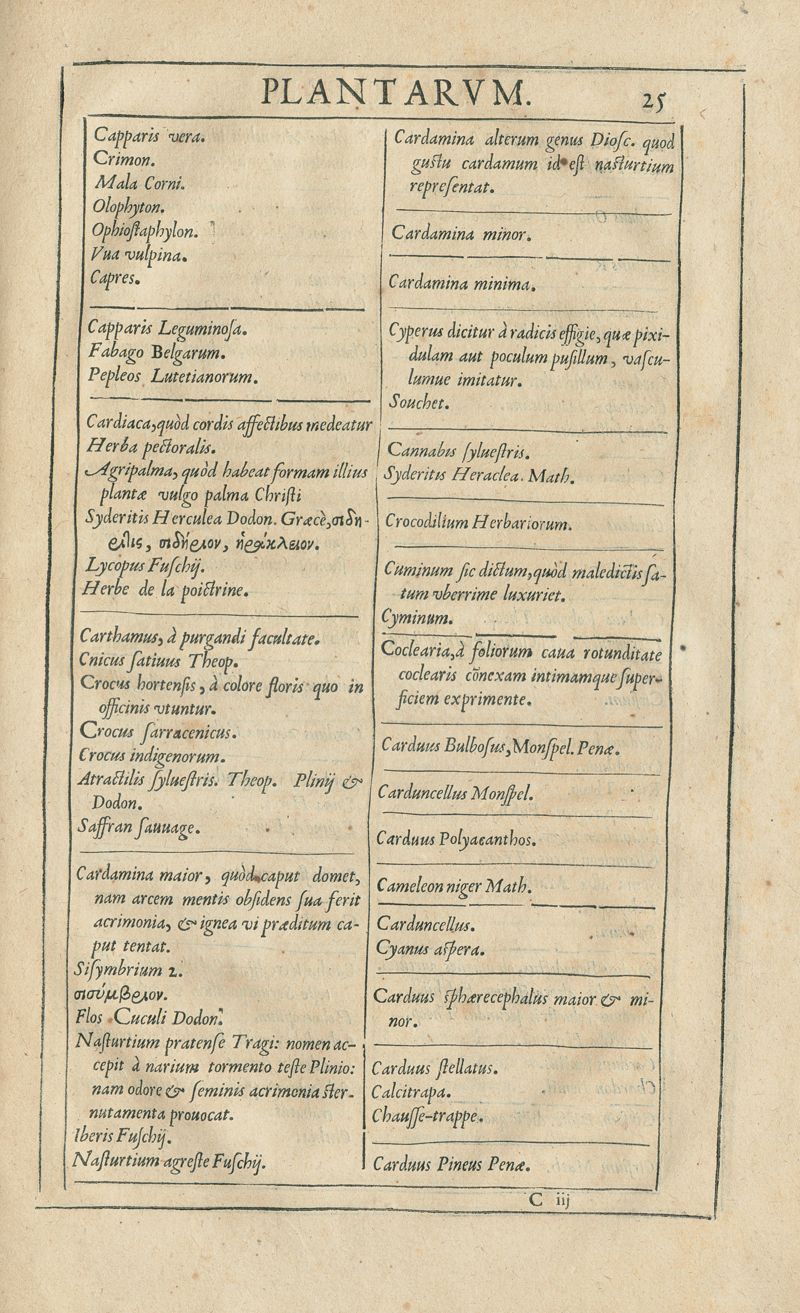 PLANTARVM.
25
Capparis vera.
Crimon.
Mala Corni.
Olophyton.
Ophioſtaphylon.
Vua vulpina.
Capres.
Capparis Leguminoſa.
Fabago Belgarum.
Pepleos Lutetianorum.
Cardiaca, quòd cordis affectibus medeatur
Herba pectoralis.
Agripalma, quòd habeat formam illius
plantæ vulgo palma Chriſti
Syderitis Herculea Dodon. Græcè, σιδη-
ρῖτις, σιδήριον, ἡράκλειον.
Lycopus Fuſchij.
Herbe de la poictrine.
Carthamus, à purgandi facultate.
Cnicus ſatiuus Theop.
Crocus hortenſis, à colore floris quo in
officinis vtuntur.
Crocus ſarracenicus.
Crocus indigenorum.
Atractilis ſylueſtris. Theop. Plinij &
Dodon.
Saffran ſauuage.
Cardamina maior, quòd caput domet,
nam arcem mentis obſidens ſua ferit
acrimonia, & ignea vi præditum ca-
put tentat.
Siſymbrium 2.
σισύμβριον.
Flos Cuculi Dodon.
Naſturtium pratenſe Tragi: nomen ac-
cepit à narium tormento teſte Plinio:
nam odore & ſeminis acrimonia ſter-
nutamenta prouocat.
Iberis Fuſchij.
Naſturtium agreſte Fuſchij.
Cardamina alterum genus Dioſc. quod
guſtu cardamum id eſt naſturtium
repreſentat.
Cardamina minor.
Cardamina minima.
Cyperus dicitur à radicis effigie, quæ pixi-
dulam aut poculum puſillum, vaſcu-
lumue imitatur.
Souchet.
Cannabis ſylueſtris.
Syderitis Heraclea. Math.
Crocodilium Herbariorum.
Cuminum ſic dictum, quòd maledictis ſa-
tum vberrime luxuriet.
Cyminum.
Coclearia, à foliorum caua rotunditate
coclearis cõnexam intimamque ſuper-
ficiem exprimente.
Carduus Bulboſus, Monſpel. Penæ.
Carduncellus Monſpel.
Carduus Polyacanthos.
Cameleon niger Math.
Carduncellus.
Cyanus aſpera.
Carduus ſphærecephalus maior & mi-
nor.
Carduus ſtellatus.
Calcitrapa.
Chauſſe-trappe.
Carduus Pineus Penæ.
C iij